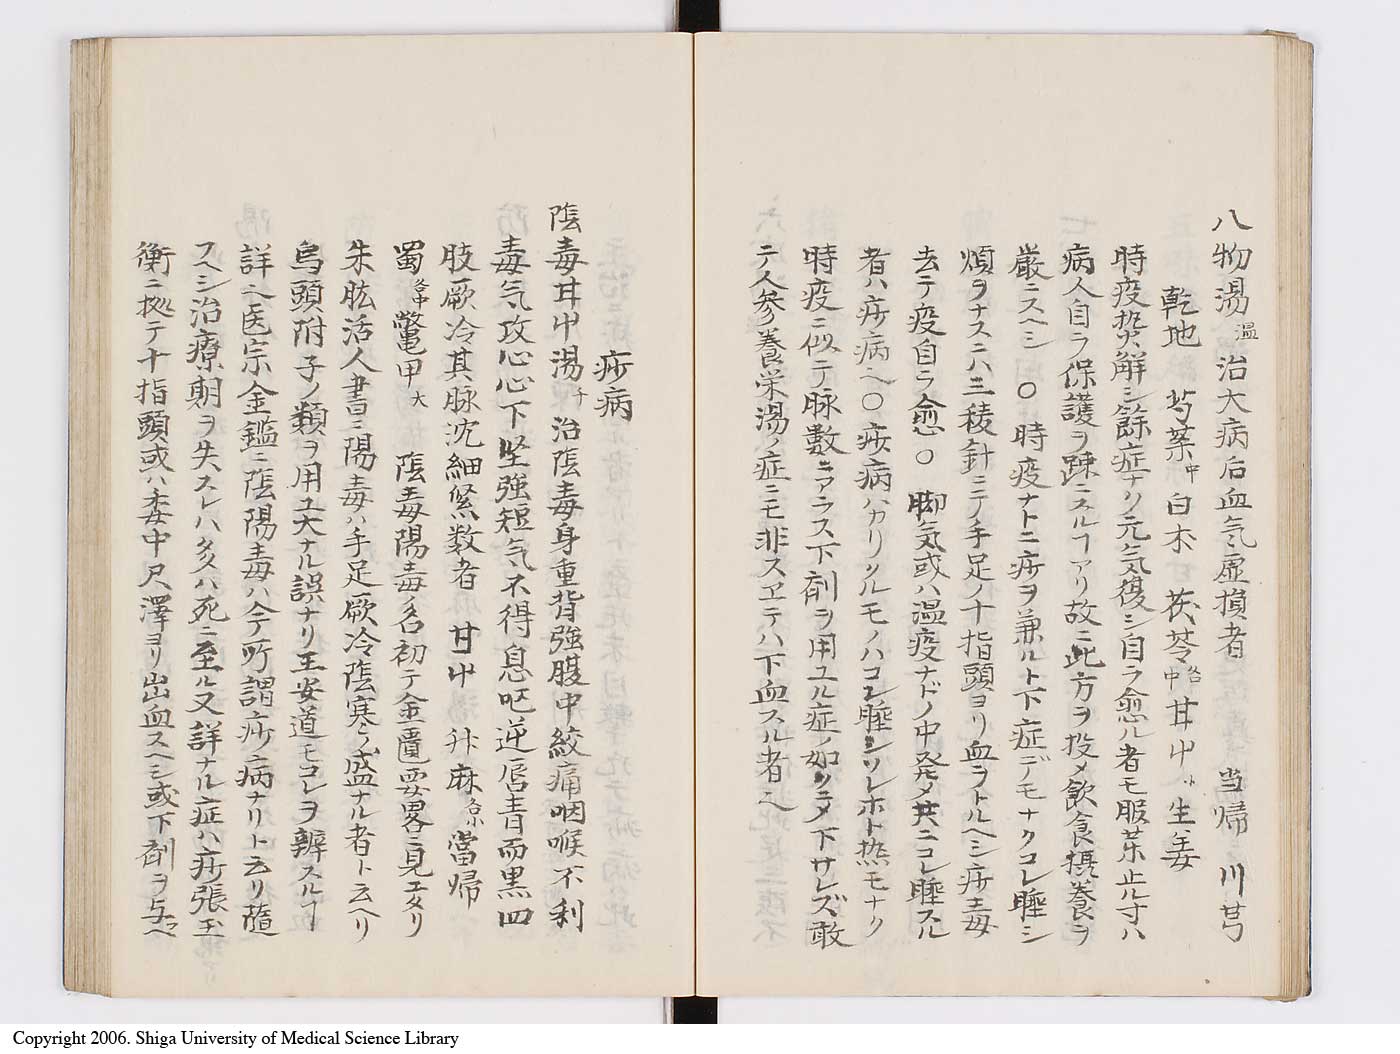 八物湯温 治大病后血気虚損者 当帰 川芎
乾地 芍薬中 白朮 茯苓各中 甘艸小 生姜
時疫熱解シ餘症ナク元気復シ自ラ愈ル者モ服茶止ル寸ハ
病人自ラ保護ヲ疎ニスルヿアリ故ニ此方ヲ投メ飲食摂養ヲ
厳ニスヘシ 〇時疫ナトニ痧ヲ兼ルト下症デモナクコレ睡シ
煩ヲナスニハ三稜針ニテ手足ノ十指頭ヨリ血ヲトルヘシ痧毒
去テ疫自ラ愈〇 脚気或ハ温疫ナドノ中発メ共ニコレ睡スル
者ハ痧病ヘ〇痧病ハカリクルモノハコレ睡シソレホト熱モナク
時疫ニ似テ脉数ニアラス下剤ヲ用ユル症ノ如クニメ下サレズ敢
テ人参養栄湯ノ症ニモ非スヱテハ下血スル者ヘ
痧病
陰毒甘艸湯千 治陰毒身重背強腹中絞痛咽喉不利
毒気攻心心下坚強短気不得息呕逆唇青而黒四
肢厥冷其脉沈細緊数者 甘艸 升麻各小 當帰
蜀各中 鼈甲大 陰毒陽毒名初テ金匱要畧ニ見エタリ
朱肱活人書ニ陽毒ハ手足厥冷陰寒ノ盛ナル者ト云ヘリ
烏頭附子ノ類ヲ用ユ大ナル誤ナリ王安道モコレヲ辨スルヿ
詳ヘ医宗金鑑ニ陰陽毒ハ今所謂痧病ナリト云リ隨
フヘシ治療期ヲ失スレハ多クハ死ニ至ル又詳ナル症ハ痧張玉
衡ニ拠テ十指頭或ハ委中尺澤ヨリ出血スヘシ或下剤ヲ与ベ